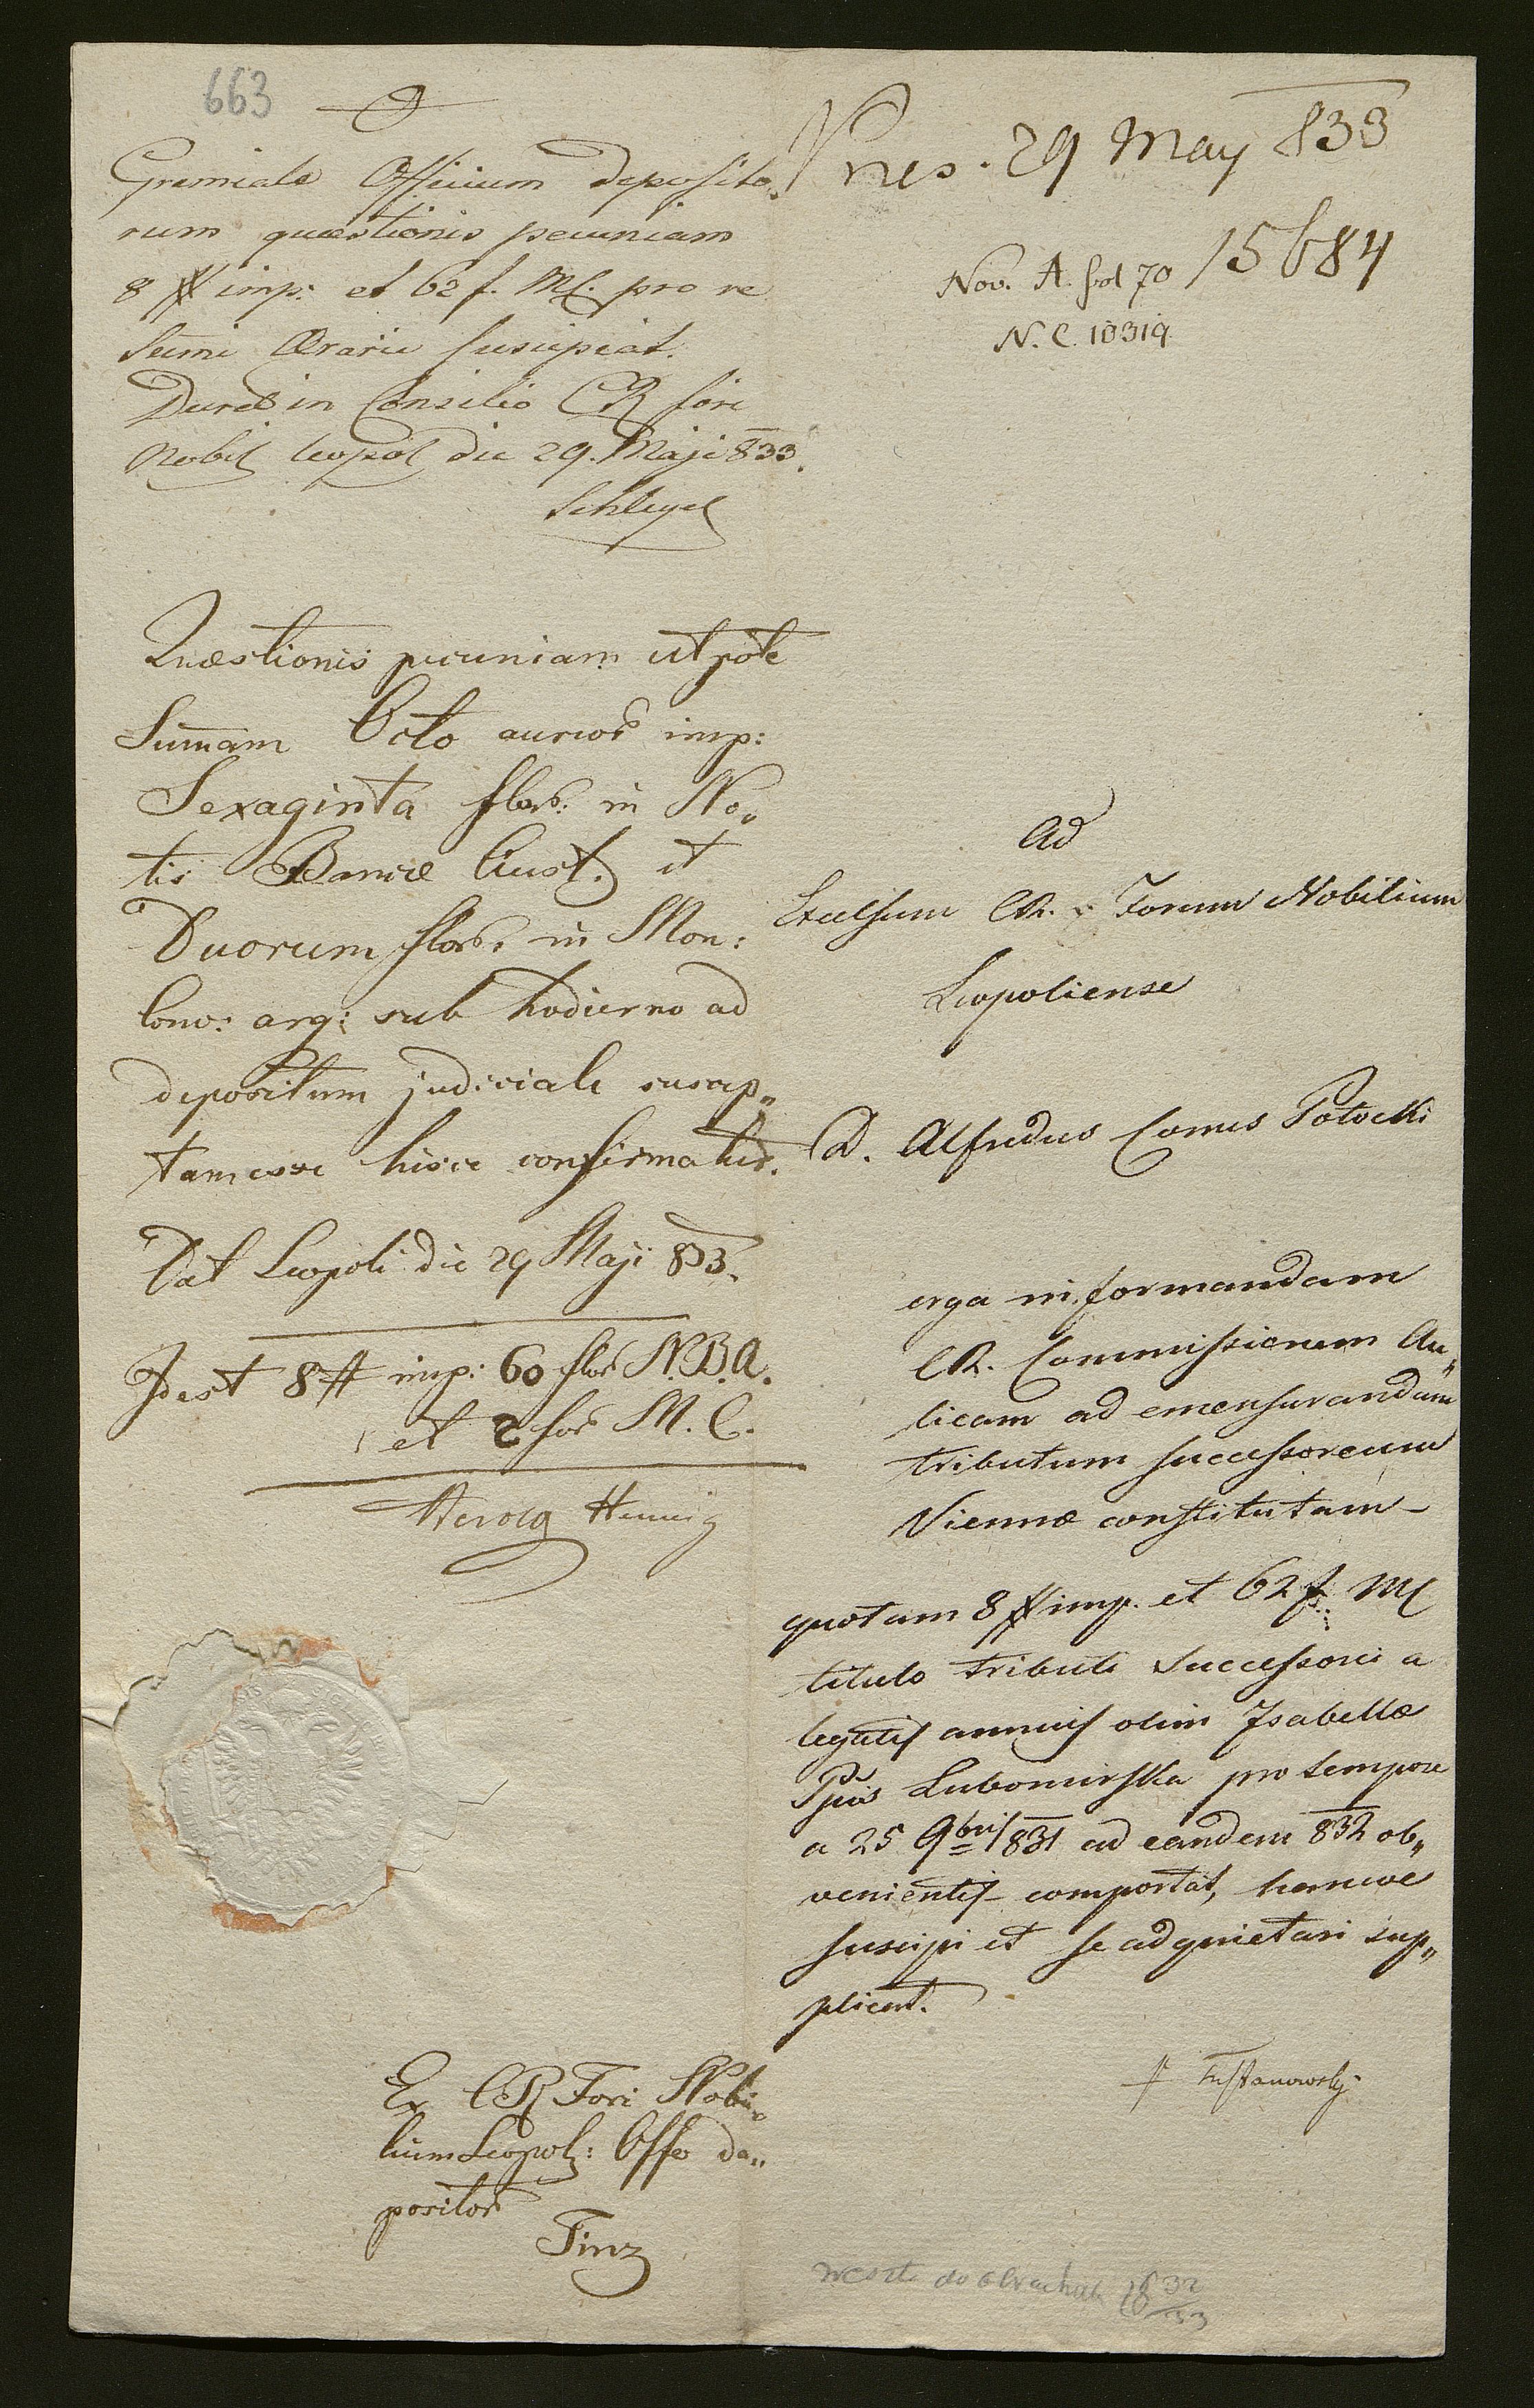 663
Gremiale Officium deposito„
rum quæstionis pecuniam
8 # imp: et 62 f. MC. pro re
Sũmi Ærarii suscipiat.
Decret in Consilio CR fori
Nobil Leopol die 29. Maji 833.
Schlegel
Quæstionis pecuniam utpote
Sum̃am Octo aureor imp:
Sexaginta flor: in No„
tis Bancæ Aust. et
Duorum flor. in Mon:
Conv: arg: sub hodierno ad
depositum judiciale suscep„
tam esse hisce confirmatur.
Dat Leopoli die 29 Maji 833.
Idest 8 # imp: 60 flor N.B.A.
et 2 flor M.C.
Hennig
Ex CR Fori Nobi„
lium Leopol: Offo de„
positor
Tinz
Pres. 29 May 833
15684
Nov. A. fol 70
N. C. 10319
Ad
Excelsum CR. Forum Nobilium
Leopoliense
D. Alfredus Comes Potocki
erga informandam
CR. Commissionem Au„
licam ad emensurandum
tributum successoreum
Viennæ constitutam
quotam 8 # imp. et 62 f. MC
titulo tributi successorii a
legatis annuis olim Isabellæ
Pĩs Lubomirska pro tempore
a 25 9bris 831 ad eandem 832 ob„
venientis comportat, hancce
suscipi et se adquietari sup„
plicat.
do obrachunku 1832/33